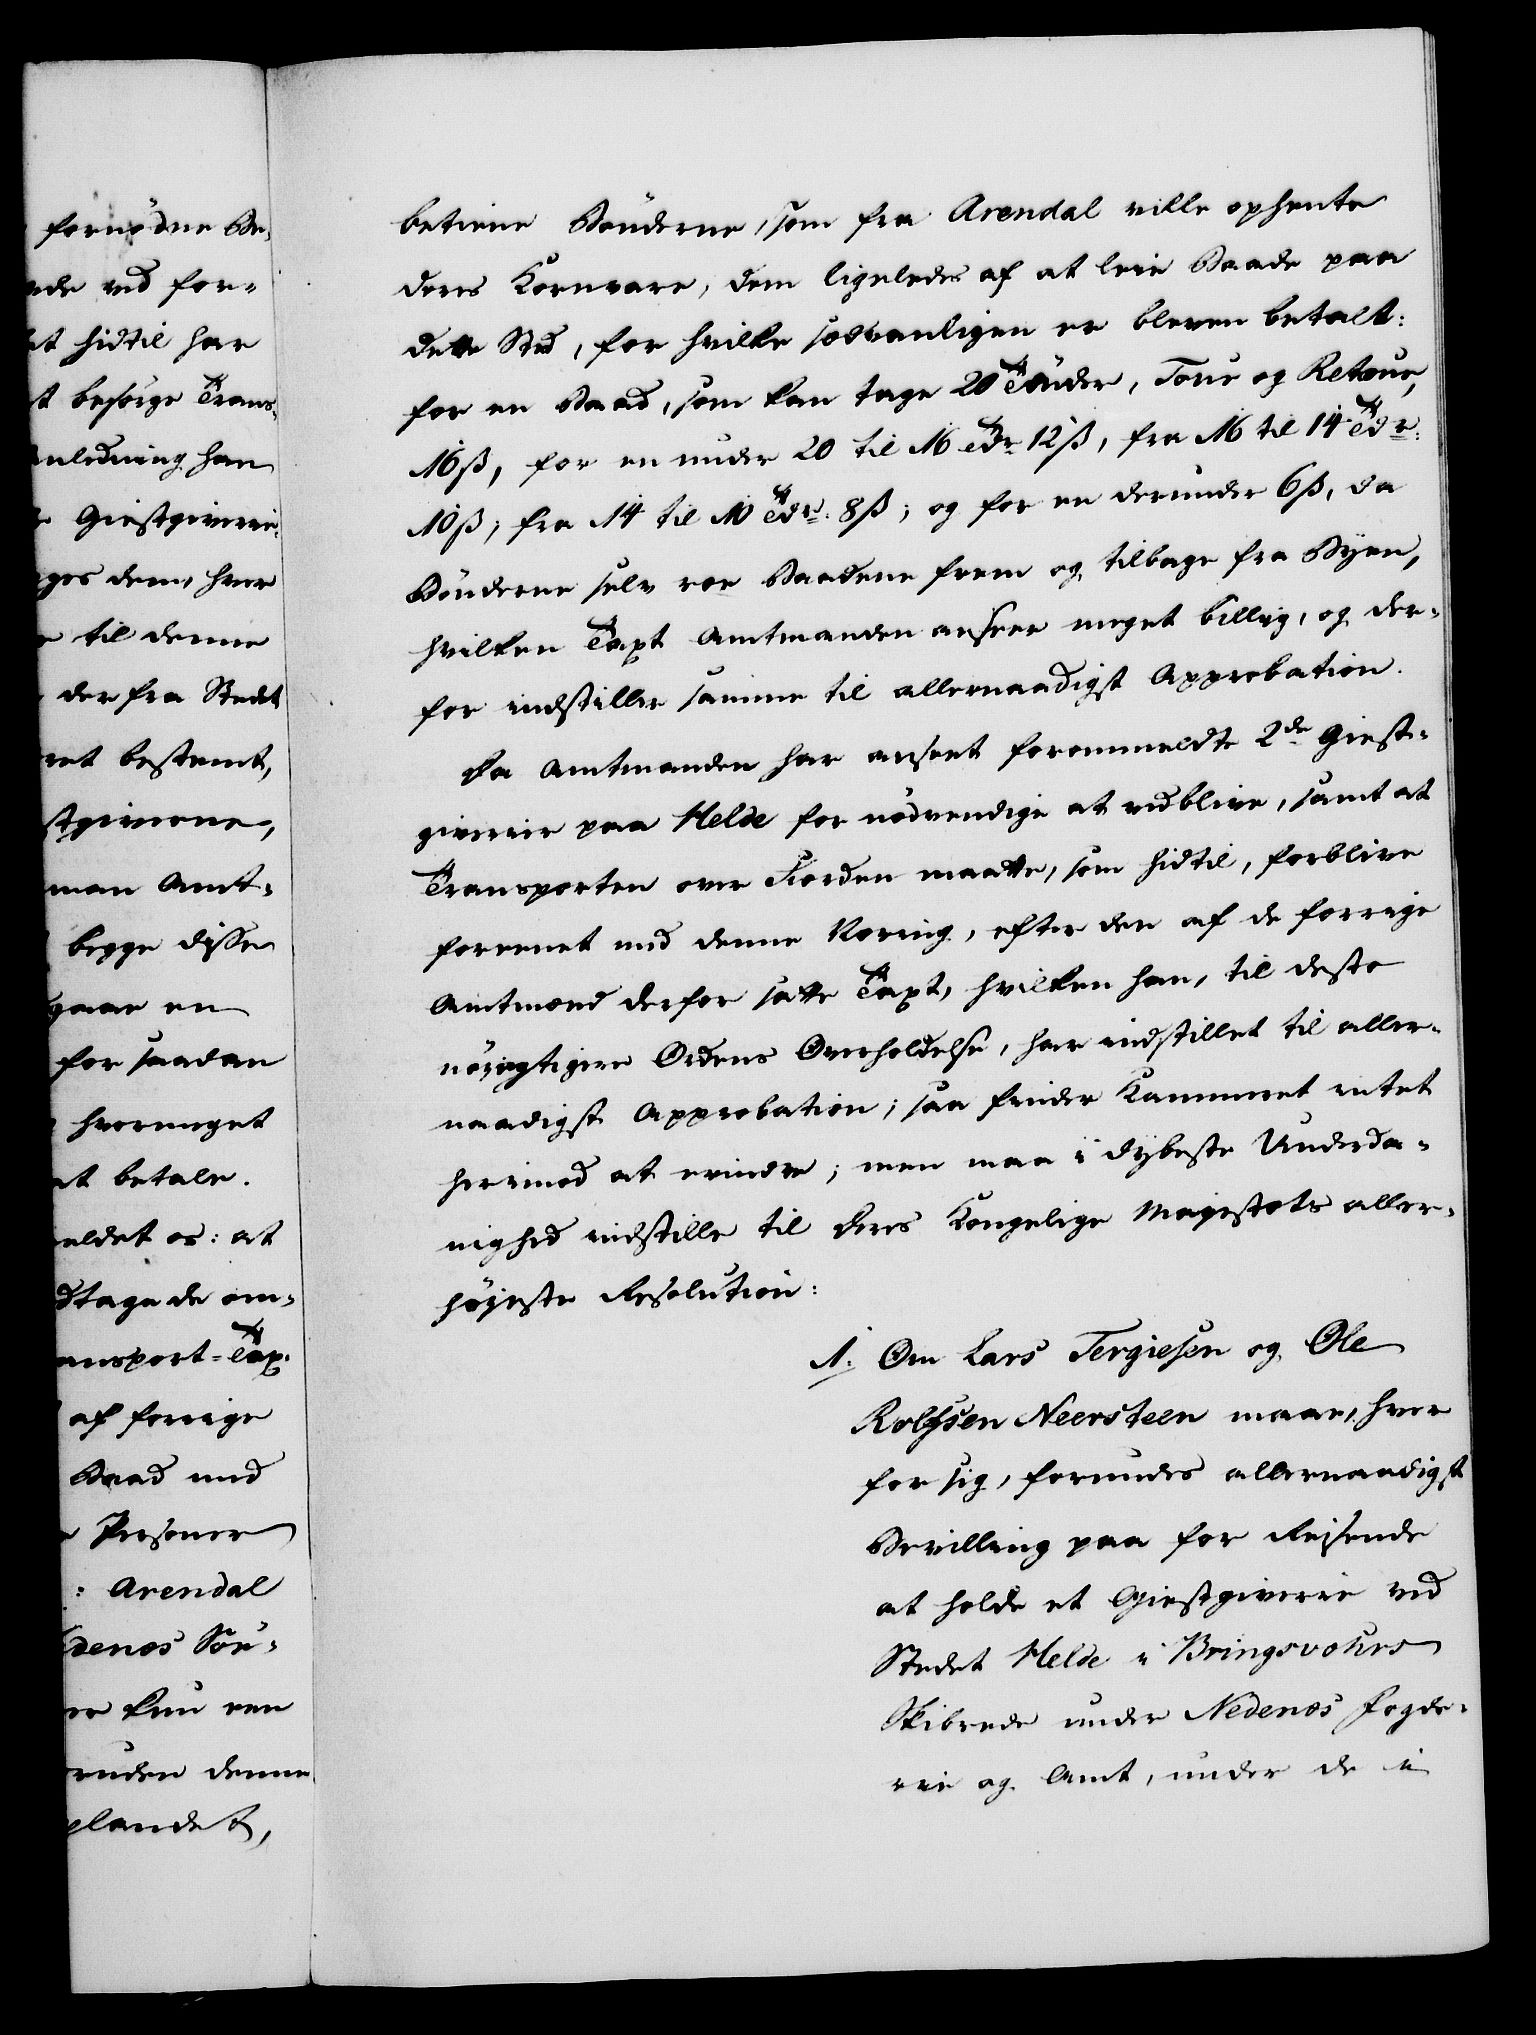 fornødne Be-
ved for-
hidtil har
besørge Trans-
Anledning han
Giestgiverie
dem, hver
til denne
der fra Stedet
bestemt,
Amt-
begge disse
en
for saadan
hvormeget
at betale.
meldet os: at
de om-
Transport-Tax-
af forrige
Baad med
Personer
: Arendal
Nedenæs Sør-
kun een
denne
betiene Bønderne, som fra Arendal ville ophente
deres Kornvare, dem ligeledes af at leie Baade paa
dette Sted, for hvilke sædvanligen er bleven betalt:
for en Baad, som kan tage 20 Tønder, Tour og Retour,
16 ß, for en under 20 til 16 Tdr. 12 ß, fra 16 til 14 Tdr.
10 ß; fra 14 til 10 Tdr. 8 ß; og for en derunder 6 ß, da
Bønderne selv roe Baadene frem og tilbage fra Byen,
hvilken Taxt Amtmanden anseer meget billig, og der-
for indstiller samme til allernaadigst Approbation.
Da Amtmanden har anseet forommeldte 2de Giest-
giverier paa Helde for nødvendige at vedblive, samt at
Transporten over Fiorden maatte, som hidtil, forblive
foreenet med denne Næring, efter den af de forrige
Amtmænd derfor satte Taxt, hvilken han, til deste
nøiagtigere Ordens Overholdelse, har indstillet til aller-
naadigst Approbation; saa finder Kammeret intet
herimod at erindre; men maa i dybeste Underda-
nighed indstille til Deres Kongelige Majestæts aller-
høyeste Resolution:
1. Om Lars Tergiesen og Ole
Rolfsen Neersteen maae, hver
for sig, forundes allernaadigst
Bevilling paa for Reisende
at holde et Giestgiverie ved
Stedet Helde i Bringsvohrs
Skibrede under Nedenæs Fogde-
rie og Amt, under de i